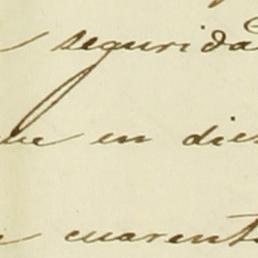 seguridad
que en die
cuarenta